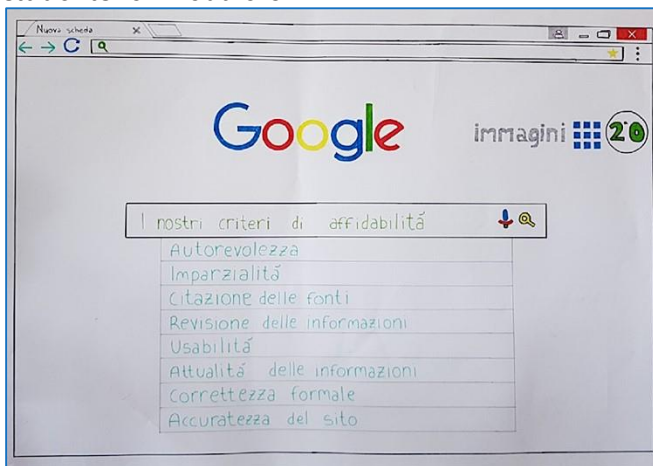 Nuova scheda
Google
immagini
2.0
I nostri criteri di affidabilitá
Autorevolezza
Imparzialitá
Citazione delle fonti
Revisione delle informazioni
Usabilitá
Attualitá delle informazioni
Correttezza formale
Accuratezza del sito